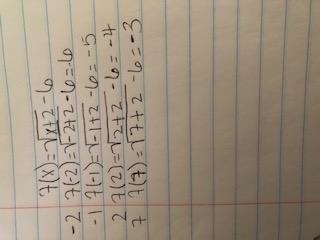 f(x)=√x+2 - 6
-2 f(-2)=√-2+2 - 6=-6
-1 f(-1)=√-1+2 - 6=-5
2 f(2)=√2+2 - 6=-4
7 f(7)=√7+2 - 6=-3